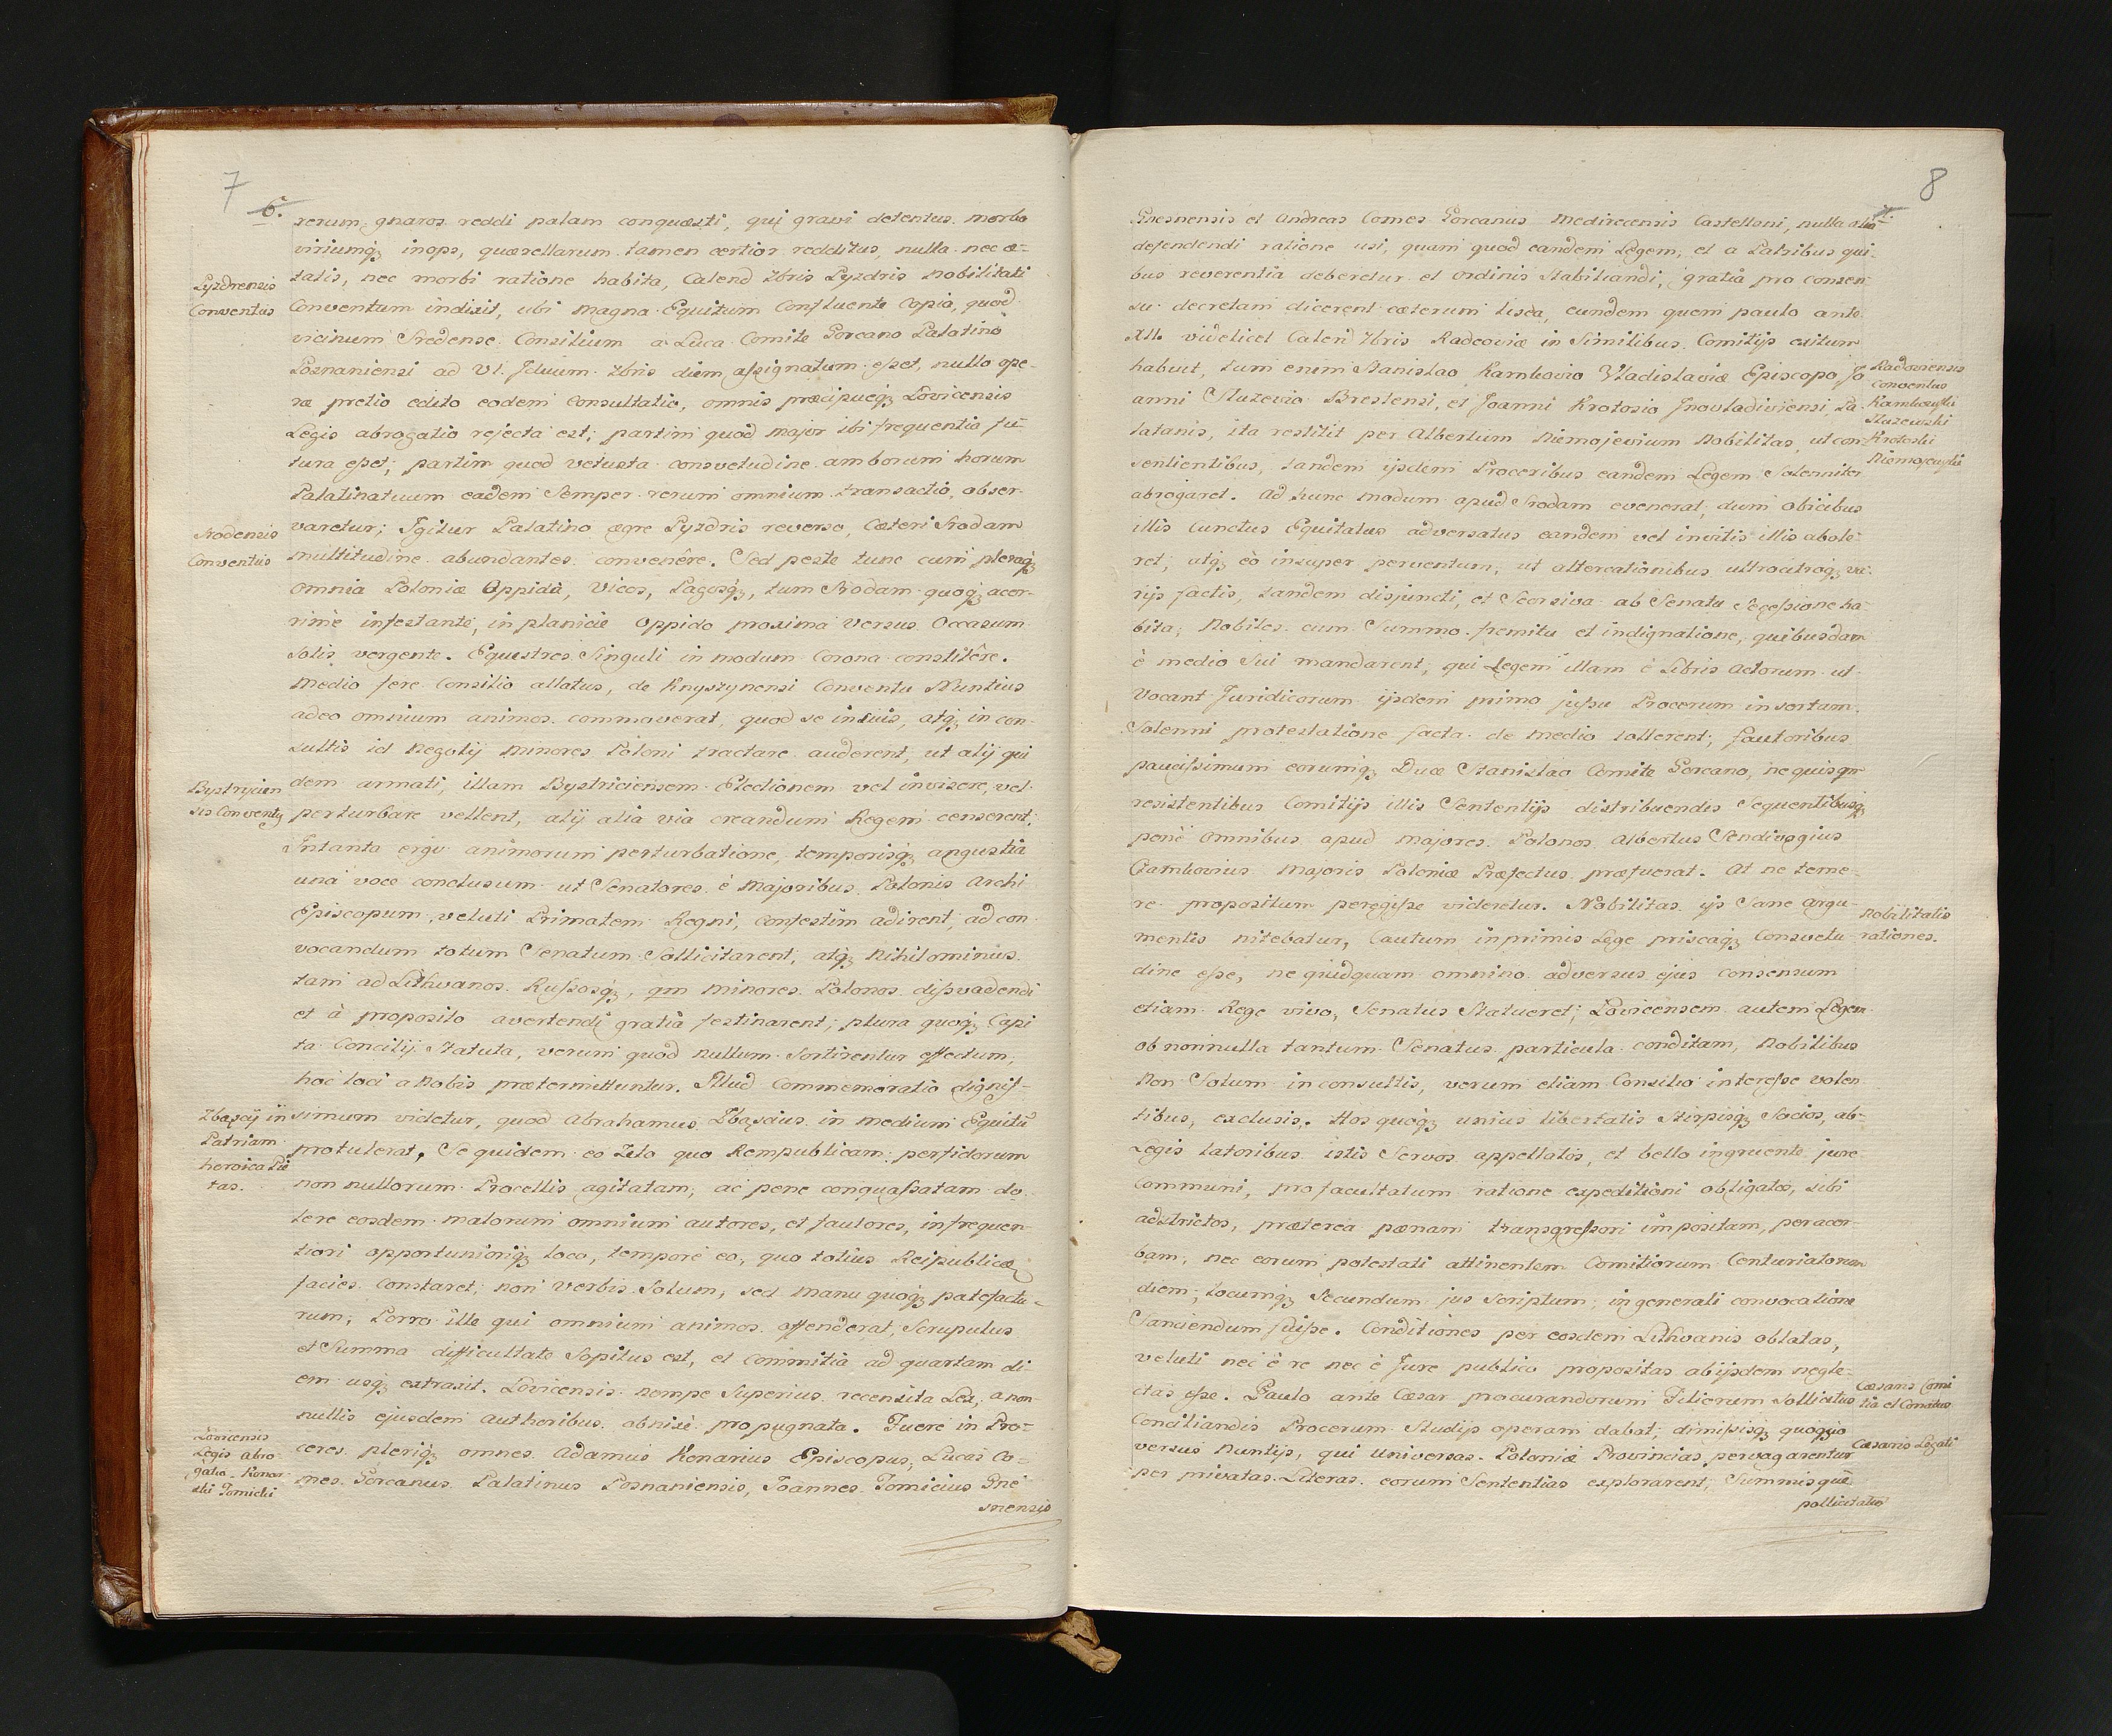 7
6.
rerum gnaros reddi palam conquæsti, qui gravi detentus morbo
viriumq; inops, quærellarum tamen certior redditus, nulla nec æ-
tatis, nec morbi ratione habita, Calend 7bris Pyzdris Nobilitati
Pyzdrensis
Conventus
Conventum indixit, ubi magna Equitum Confluente Copia, quod
vicinum Sredense Consilium a Luca Comite Gorcano Palatino
Posnaniensi ad VI. Iduum 7bris diem assignatum esset, nullo ope-
ræ pretio edito eodem Consultatio, omnis præcipueq; Lovicensis
Legis abrogatio rejecta est; partim quod major ibi frequentia fu-
tura esset, partim quod vetusta consvetudine amborum horum
Palatinatuum eadem Semper rerum omnium transactio, obser-
varetur; Igitur Palatino ægre Pyzdris reverso, Cæteri Srodam
Srodensis
Conventus
multitudine abundantes convenêre. Sed peste tunc cum pleraq;
omnia Poloniæ Oppida, Vicos, Pagosq;, tum Srodam quoq; acer-
rimè infestante, in planicie Oppido proxima versus Occasum
Solis vergente. Equestres Singuli in modum Corona constitêre.
Medio fere Consilio allatus, de Knyszynensi Conventu Nuntius
adeo omnium animos commoverat, quod se insuis, atq; in con-
sultis id Negotij Minores Poloni tractare auderent, ut alij qui
dem armati, illam Bystriciensem Electionem vel invisere, vel
Bystrycien
sis Conventq
perturbare vellent, alij alia via creandum Regem censerent;
Intanta ergo animorum perturbatione, temporisq; angustia
una voce conclusum ut Senatores è Majoribus Polonis Archi
Episcopum, veluti Primatem Regni, Confestim adirent, ad con
vocandum totum Senatum Sollicitarent, atq; Nihilominus
tam ad Lithvanos Russosq;, qm Minores Polonos dissvadendi
et à proposito avertendi gratia festinarent; plura quoq; Capi
ta Concilij Statuta, verum quod nullum Sortirentur effectum,
hoc loci a Nobis prætermittuntur. Illud Commemoratio dignis-
simum videtur, quod Abrahamus Zbąscius in medium Equitū
Zbąscij in
Patriam
heroica Pie
tas.
protulerat, Se quidem eo Zelo quo Rempublicam perfidorum
non nullorum Procellis agitatam, ac pene conquassatam do
lere eosdem malorum omnium autores, et fautores, infrequen-
tiori opportuniorıq; loco, tempore eo, quo totius Reipublicæ
facies Constaret; non Verbis Solum, sed manu quoq; patefactu-
rum; Porro ille qui omnium animos offenderat, Scrupulus
et Summa difficultate Sopitus est, et Commitia ad quartam di
em usq; extraxit. Lovicensis nempe Superius recensita Lex, a non
nullis ejusdem Authoribus obnixè propugnata. Fuere in Pro-
Lovicensis
Legis abro
gatio. Konar
ski Tomicki
ceres pleriq; omnes Adamus Konarius Episcopus, Lucas Co-
mes Gorcanus Palatinus Posnaniensis, Joannes Tomicius Gne
snensis
8
Gnesnensis et Andreas Comes Gorcanus Medirecensis Castellani, nulla alia
defendendi ratione usi, quam quod eandem Legem, et a Patribus qui-
bus reverentia deberetur et Ordinis Stabiliandi, gratiâ pro consen
su decretam dicerent cæterum lisea, eundem quem paulo ante
XII. videlicet Calend 7bris Radeoviæ in Similibus Comitijs exitum
habuit, tum enim Stanislao Karnkovio Vladislaviæ Episcopo Jo
Radzieiensis
Conventus
Karnkowski
Służewski
Krotoski
Niemojewski
anni Sluzevio Brestensi, et Joanni Krotosio Inovladiviensi Pa-
latanis, ita restitit per Albertum Niemojevium Nobilitas, ut con-
sentientibus, tandem ijsdem Proceribus eandem Legem Solenniter
abrogaret. Ad hunc modum apud Srodam evenerat, dum obicibus
illis Cunctus Equitatus adversatus eandem vel invitis illis abole-
ret, atq; eò insuper perventum, ut altercationibus ultrocitroq; va-
rijs factis, tandem disjuncti, et Seorsiva ab Senatu Secessione ha-
bita, Nobiles cum Summo fremitu et indignatione, quibusdam
è medio Sui mandarent, qui Legem illam è Libris Actorum ut
Vocant Juridicorum ijsdem primo jussu Procerum insertam
Solenni protestatione facta de medio tollerent; Fautoribus
paucissimum eorumq; Duce Stanislao Comite Gorcano, ne quisqm
resistentibus Comitijs illis Sententijs distribuendis Sequentibusq;
penè omnibus apud Majores Polonos Albertus Sendivogius
Czarnkovius Majoris Poloniæ Præfectus præfuerat. At ne teme-
re propositum peregisse videretur. Nobilitas ijs Sane Argu-
Nobilitatis
rationes.
mentis nitebatur, Cautum inprimis Lege priscaq; Consvetu
dine esse, ne quidquam omnino adversus ejus consensum
etiam Rege vivo, Senatus Statueret; Lovicensem autem Legem
ob nonnulla tantum Senatus particula conditam, Nobilibus
Non Solum in consultis, verum etiam Consilio interesse volen
tibus, exclusis. Hos quoq; unius libertatis Stirpisq; Socios, ab-
Legis latoribus istis Servos appellatos, et bello ingruente jure
Communi, pro facultatum ratione expeditioni obligatos, sibi
adstrictos, præterea pænam transgressori impositam, peracer-
bam, nec eorum potestati attinentem Comitiorum Centuriatorum
diem, locumq; Secundum jus Scriptum, in generali convocatione
Sanciendum fuisse. Conditiones per eosdem Lithvanis oblatas,
veluti nec è re nec è Jure publico propositas abijsdem negle-
ctas esse. Paulo ante Cæsar procurandorum Filiorum Sollicitus
Cæsaris Comi
tia et Conatus
Conciliandis Procerum Studijs operam dabat; dimissisq; quoquo
versus Nuntijs, qui Universas Poloniæ Provincias pervagarentur
Cæsaris Legati
per privatas Literas eorum Sententias explorarent, Summisque
pollicitatio